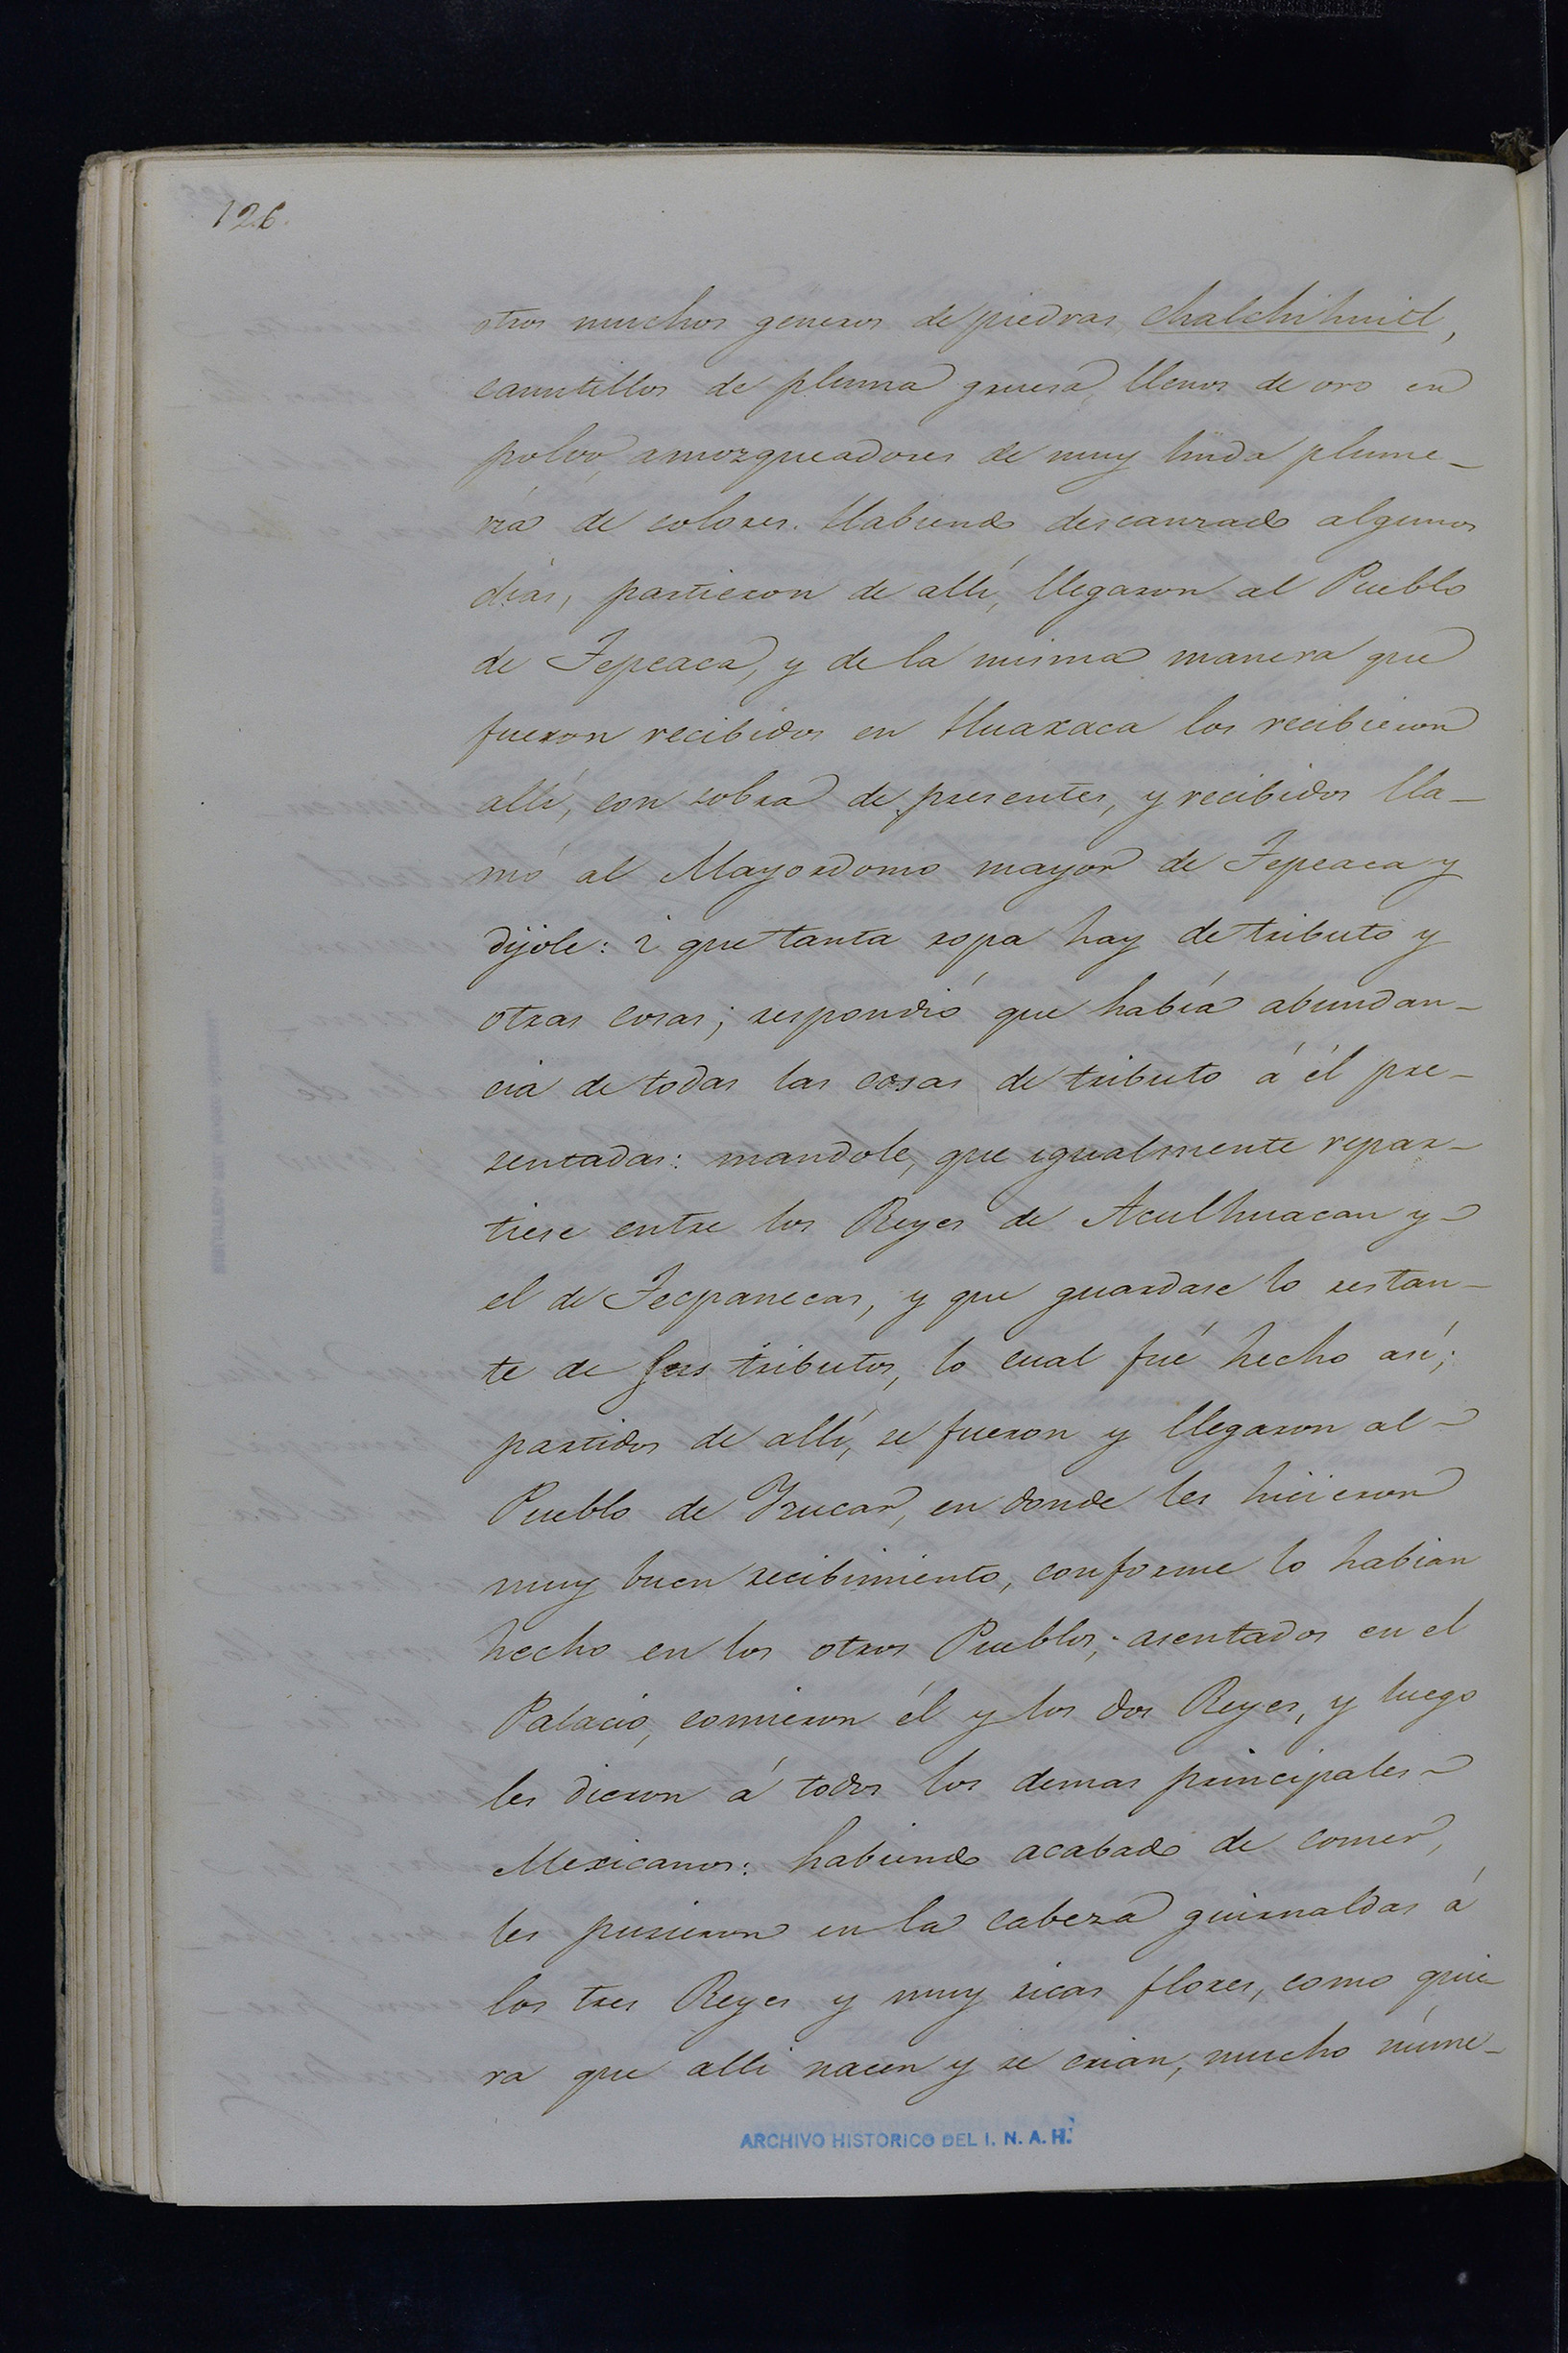 126.
otros muchos generos de piedras, Chalchihuitl,
canutillos de pluma gruesa, llenos de oro en
polvo, amozqueadores de muy linda plume-
ría de colores. Habiendo descanzado algunos
días, partieron de allí, llegaron al Pueblo
de Tepeaca, y de la misma manera que
fueron recibidos en Huaxaca los recibieron
allí, con sobra de presentes, y recibidos lla-
mó al Mayordomo mayor de Tepeaca y
díjole: ¿ que tanta ropa hay de tributo y
otras cosas; respondió que había abundan-
cia de todas las cosas de tributo á él pre-
sentadas: mandole, que igualmente repar-
tiese entre los Reyes de Aculhuacan y
el de Tecpanecas, y que guardase lo restan-
te de sus tributos, lo cual fué hecho así;
partidos de allí, se fueron y llegaron al
Pueblo de Yzucar, en donde les hicieron
muy buen recibimiento, conforme lo habian
hecho en los otros Pueblos; asentados en el
Palacio, comieron él y los dos Reyes, y luego
les dieron á todos los demas principales
Mexicanos: habiendo acabado de comer,
les pusieron en la cabeza guirnaldas á
los tres Reyes y muy ricas flores, como quie
ra que alli nacen y se crian, mucho núme-
ARCHIVO HISTORICO DEL I. N. A. H.